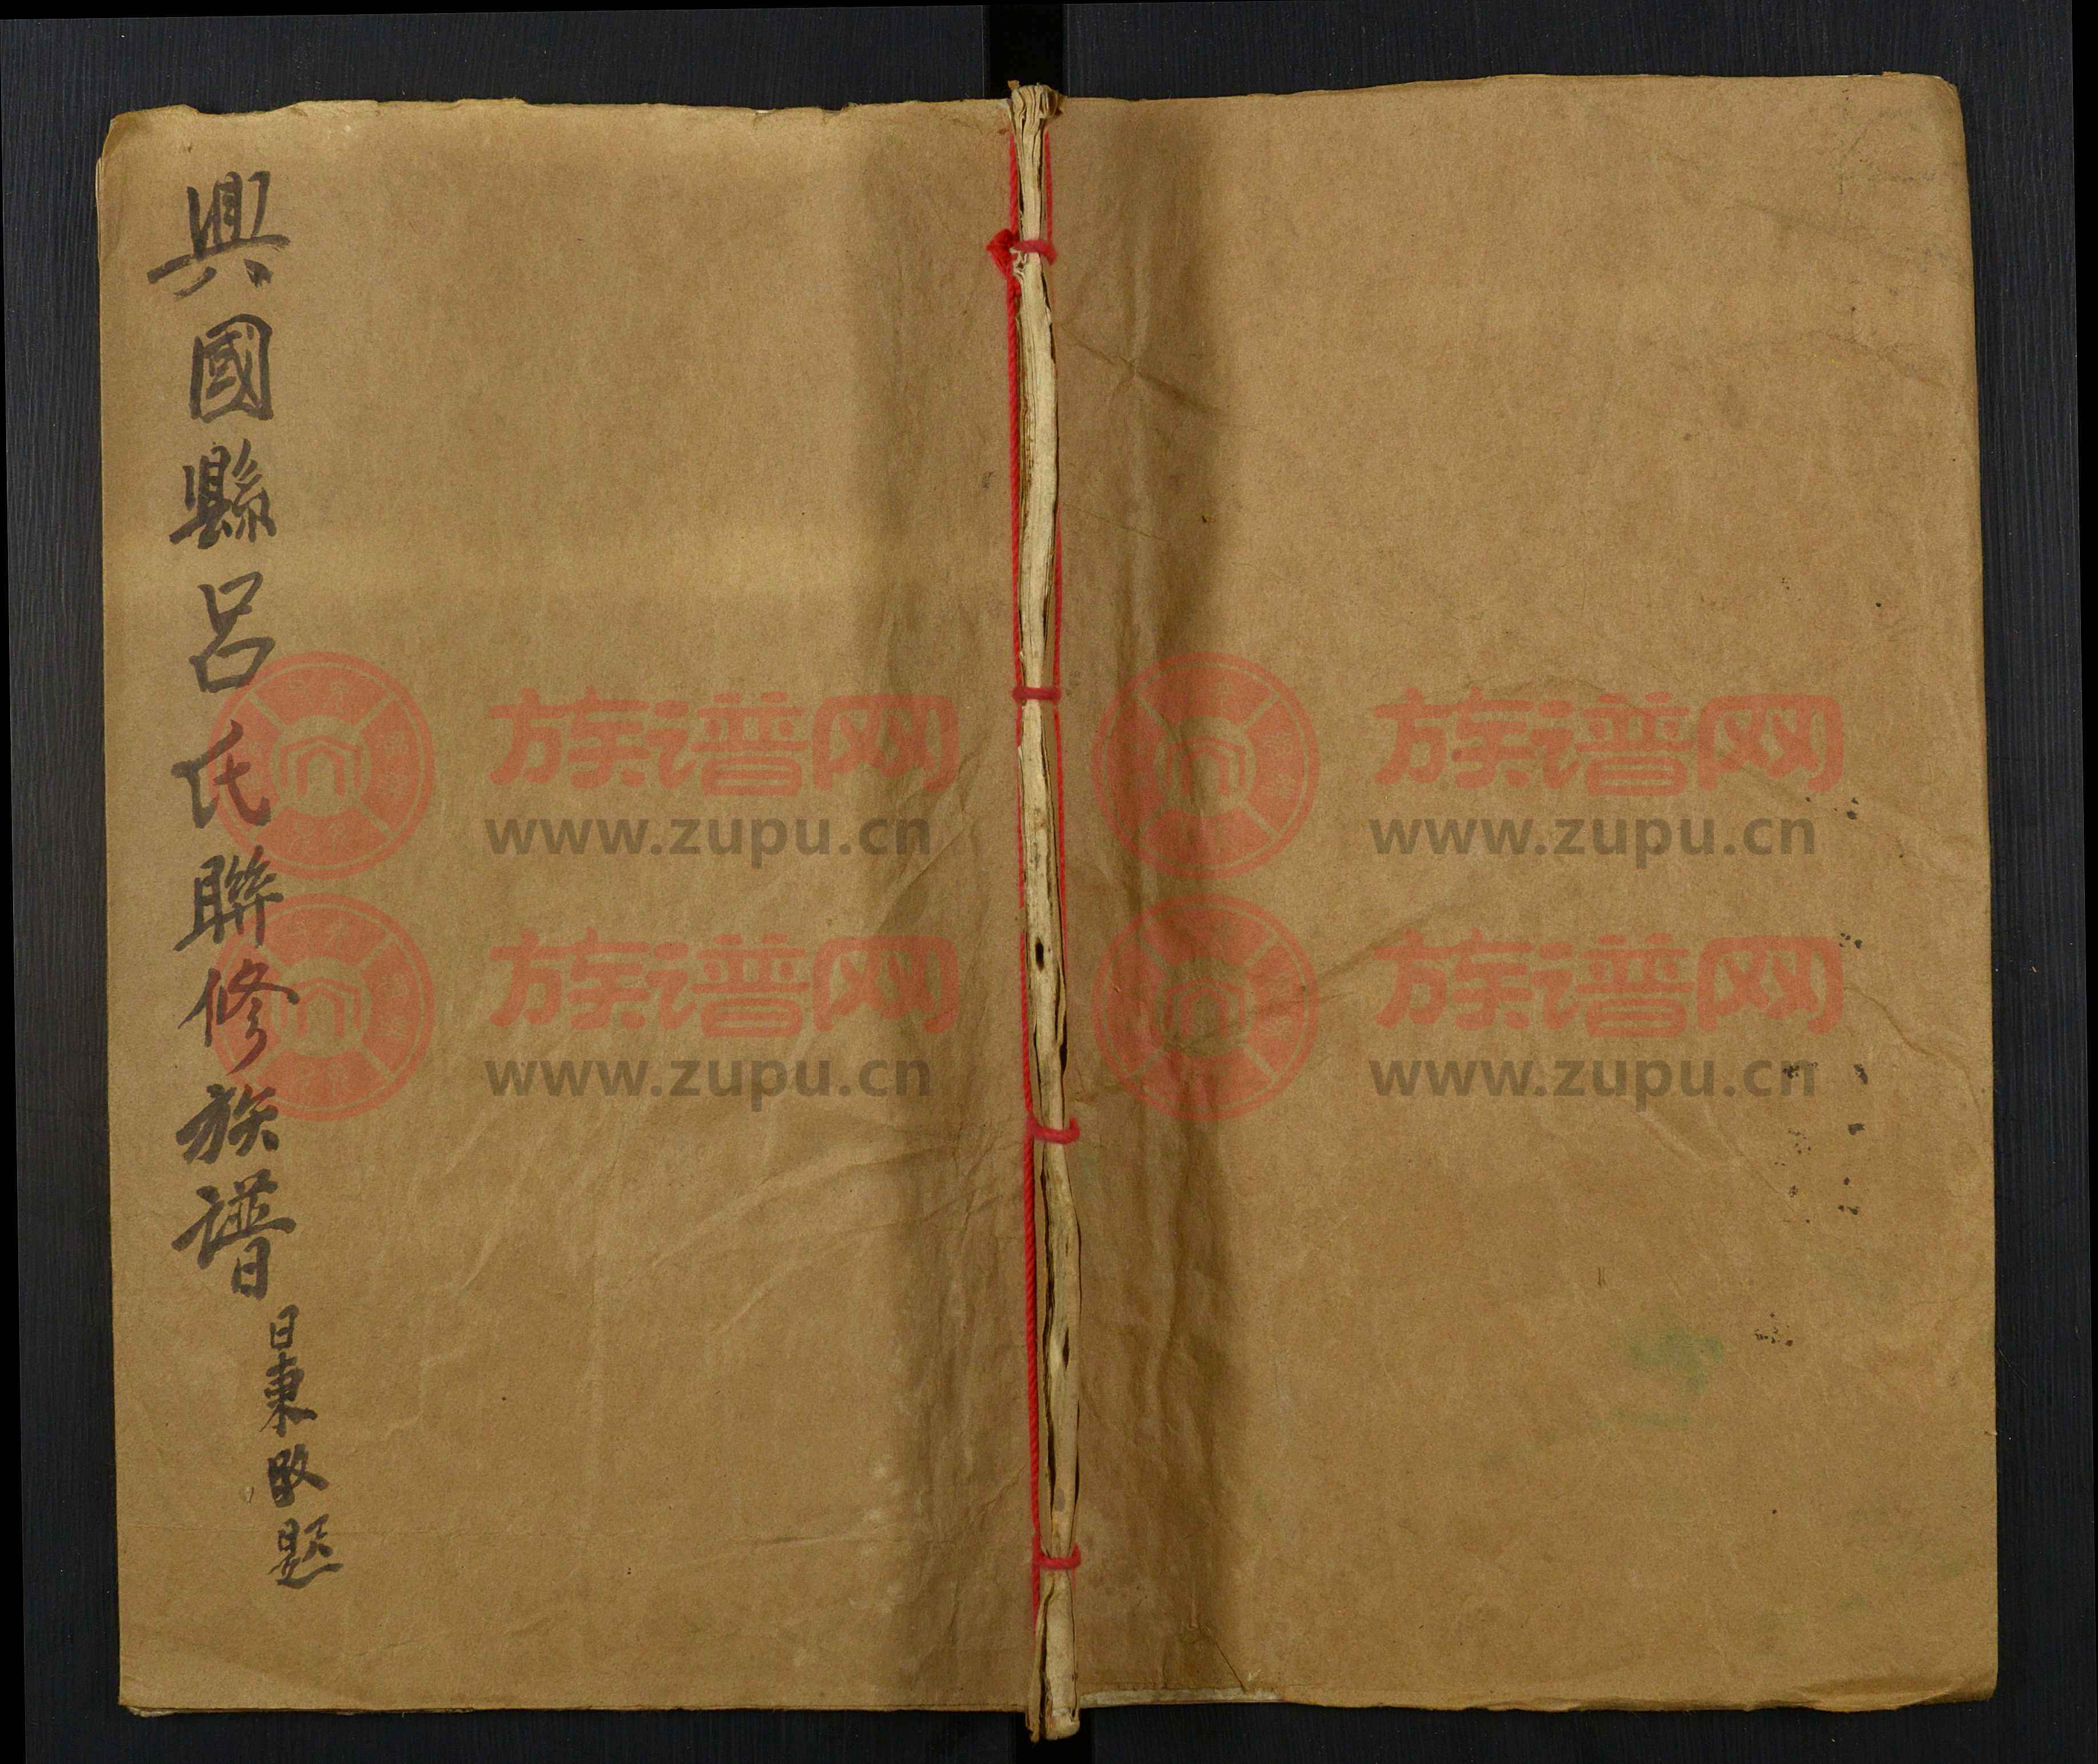 興國縣呂氏聯修族譜
題
族谱网
www.zupu.cn
族谱网
www.zupu.cn
族谱网
www.zupu.cn
族谱网
www.zupu.cn